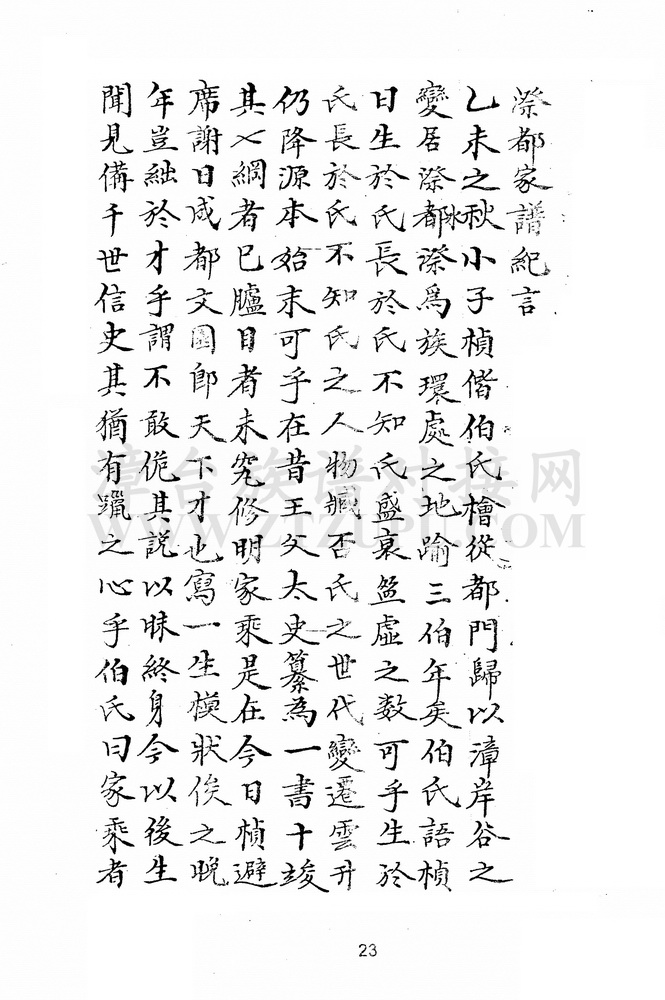 漈都家譜紀言
乙未之秋小子楨偕伯氏檜從都門歸以漳岸谷之
變居漈都水漈為族環處之地踰三伯年矣伯氏語楨
曰生於氏長於氏不知氏盛衰盈虛之数可乎生於
氏長於氏不知氏之人物臧否氏之世代變遷雲升
仍降源本始末可乎在昔王父太史纂為一書十竣
其七綱者已臚目者未究修明家乘是在今日楨避
席謝曰咸都文園郎天下才也寫一生模狀俟之晚
年豈絀於才乎謂不敢傂其說以昧終身今以後生
聞見備千世信史其猶有躐之心乎伯氏曰家乘者
漳台族谱对接网
WWW.ZTZUPU.COM
23